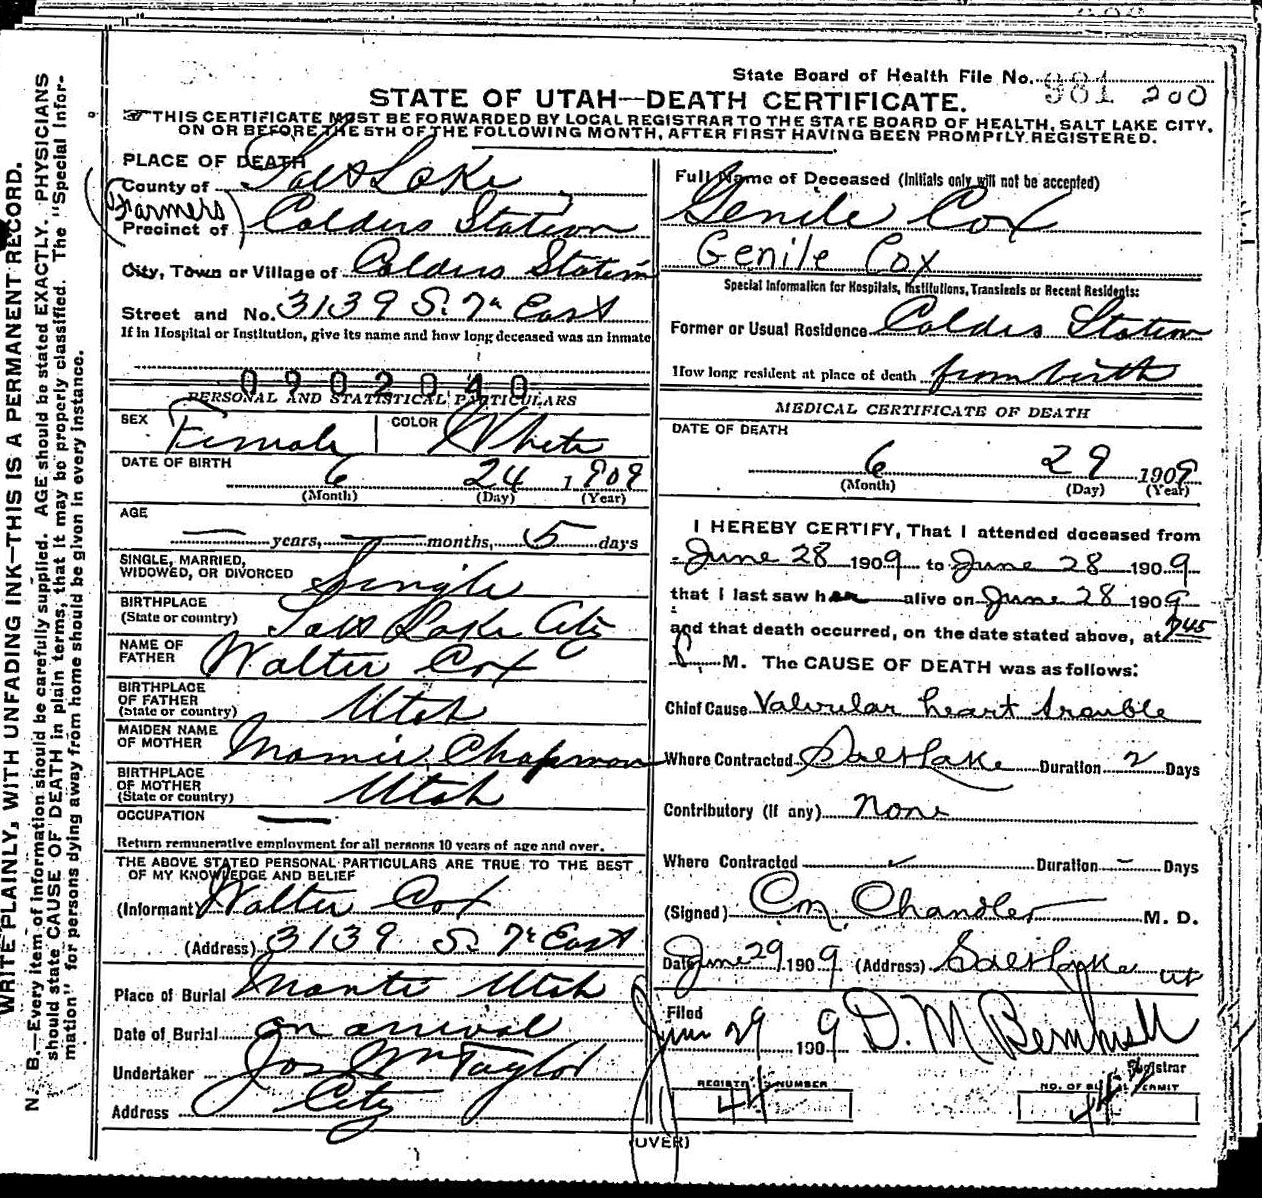 State Board of Health File No. 981 200
STATE OF UTAH—DEATH CERTIFICATE.
THIS CERTIFICATE MUST BE FORWARDED BY LOCAL REGISTRAR TO THE STATE BOARD OF HEALTH, SALT LAKE CITY,
ON OR BEFORE THE 5TH OF THE FOLLOWING MONTH, AFTER FIRST HAVING BEEN PROMPTLY REGISTERED.
WRITE PLAINLY, WITH UNFADING INK—THIS IS A PERMANENT RECORD.
N. B.—Every item of information should be carefully supplied. AGE should be stated EXACTLY. PHYSICIANS
should state CAUSE OF DEATH in plain terms, that it may be properly classified. The "Special Infor-
mation" for persons dying away from home should be given in every instance.
PLACE OF DEATH
County of Salt Lake
(Farmers)
Precinct of Calders Station
City, Town or Village of Calders Station
Street and No. 3139 S. 7th East
If in Hospital or Institution, give its name and how long deceased was an inmate
0902040
PERSONAL AND STATISTICAL PARTICULARS
SEX Female COLOR White
DATE OF BIRTH 6 24 1909
(Month) (Day) (Year)
AGE
— years, — months, 5 days
SINGLE, MARRIED,
WIDOWED, OR DIVORCED Single
BIRTHPLACE
(State or country) Salt Lake City
NAME OF
FATHER Walter Cox
BIRTHPLACE
OF FATHER
(State or country) Utah
MAIDEN NAME
OF MOTHER Mamie Chapman
BIRTHPLACE
OF MOTHER
(State or country) Utah
OCCUPATION —
Return remunerative employment for all persons 10 years of age and over.
THE ABOVE STATED PERSONAL PARTICULARS ARE TRUE TO THE BEST
OF MY KNOWLEDGE AND BELIEF
(Informant) Walter Cox
(Address) 3139 S. 7th East
Place of Burial Manti Utah
Date of Burial on arrival
Undertaker Jos Wm Taylor
Address City
Full Name of Deceased (Initials only will not be accepted)
Genile Cox
Genile Cox
Special Information for Hospitals, Institutions, Transients or Recent Residents:
Former or Usual Residence Calders Station
How long resident at place of death from birth
MEDICAL CERTIFICATE OF DEATH
DATE OF DEATH
6 29 1909
(Month) (Day) (Year)
I HEREBY CERTIFY, That I attended deceased from
June 28 1909 to June 28 1909
that I last saw her alive on June 28 1909
and that death occurred, on the date stated above, at 745
P M. The CAUSE OF DEATH was as follows:
Chief Cause Valvular heart trouble
Where Contracted Salt Lake Duration 2 Days
Contributory (if any) None
Where Contracted Duration — Days
(Signed) C M Chandler M. D.
Date June 29 1909 (Address) Salt Lake Ut
Filed
Jun 29 1909 D. M Bernhisell
Registrar
REGISTRY NUMBER 44
NO. OF BURIAL PERMIT 44
(OVER)